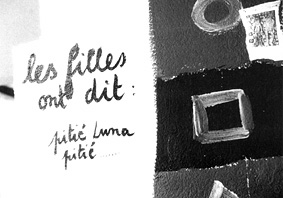 les filles
ont dit :
pitié Luna
pitié ......